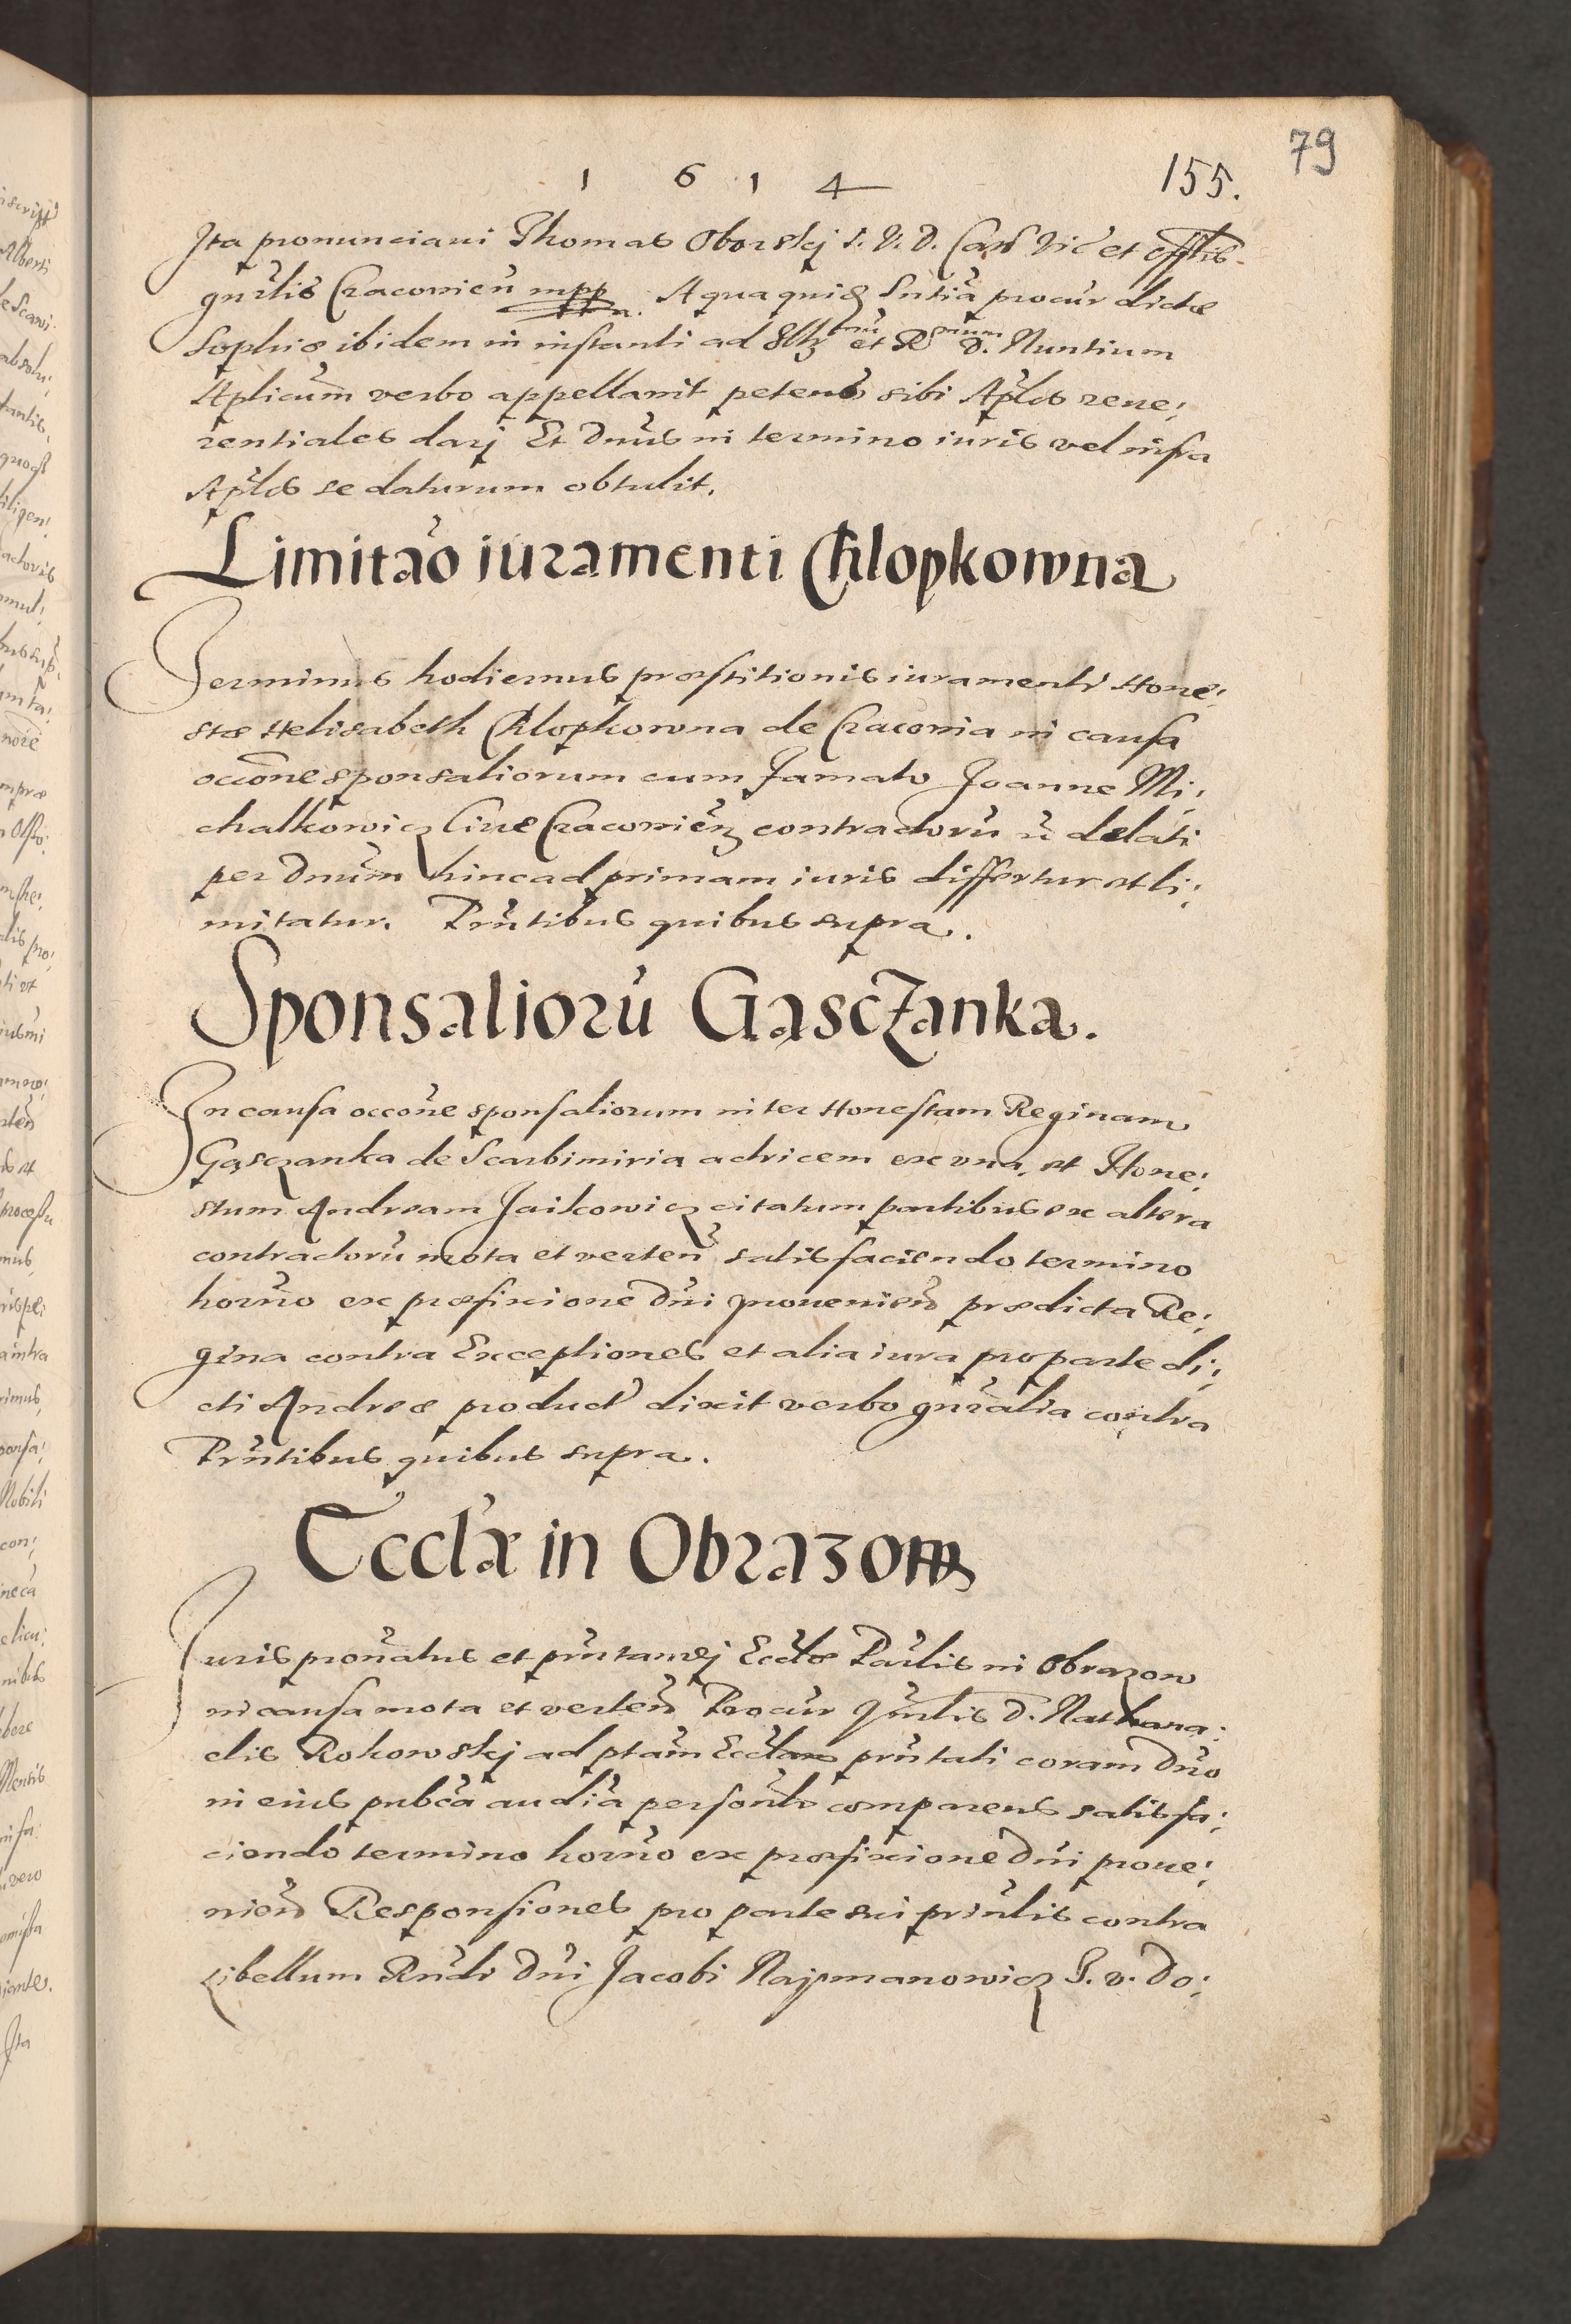 79
1 6 1 4 155.
Ita pronunciaui Thomas Oborskj I. V. D. Can Vic et offlis
gnrlis Cracovien mpp A qua quid Sntia procur dictæ
Sophiæ ibidem in instanti ad Illmu et Rmum D. Nuntium
Aplicum verbo appellavit petens sibi Aplos reue;
rentiales darj Et Dnus in termino iuris vel infra
Aplos se daturum obtulit.
Limitao iuramenti Chlopkowna
Terminus hodiernus præstitionis iuramenti Hone;
stæ Helisabeth Chlopkowna de Cracovia in causa
occone sponsaliorum cum Famato Joanne Mi;
chalkowicz Ciue Cracovien contractoru delati
per Dnum hinc ad primam iuris differtur et li;
mitatur. Prntibus quibus supra.
Sponsalioru Gasczanka.
In causa occone sponsaliorum inter Honestam Reginam
Gasczanka de Scarbimiria actricem ex una, et Hone;
stum Andream Jaikowicz citatum partibus ex altera
contractoru mota et verten satisfaciendo termino
horno ex præfixione Dni prouenien prædicta Re;
gina contra Exceptiones et alia iura pro parte di;
cti Andreæ product dixit verbo gnralia contra
Prntibus quibus supra.
Ecclæ in Obrazow
Juris pronatus et prntandj Ecclæ Parlis in Obrazow
in causa mota et verten Procur Gnlis D. Nathana;
elis Rokowskj ad ptam Ecclam prntati coram Dno
in eius pubca audia personlr comparens satisfa;
ciendo termino horno ex præfixione Dni proue;
nien Responsiones pro parte sui prinlis contra
Libellum Rndi Dni Jacobi Najmanowicz I. v. Do;